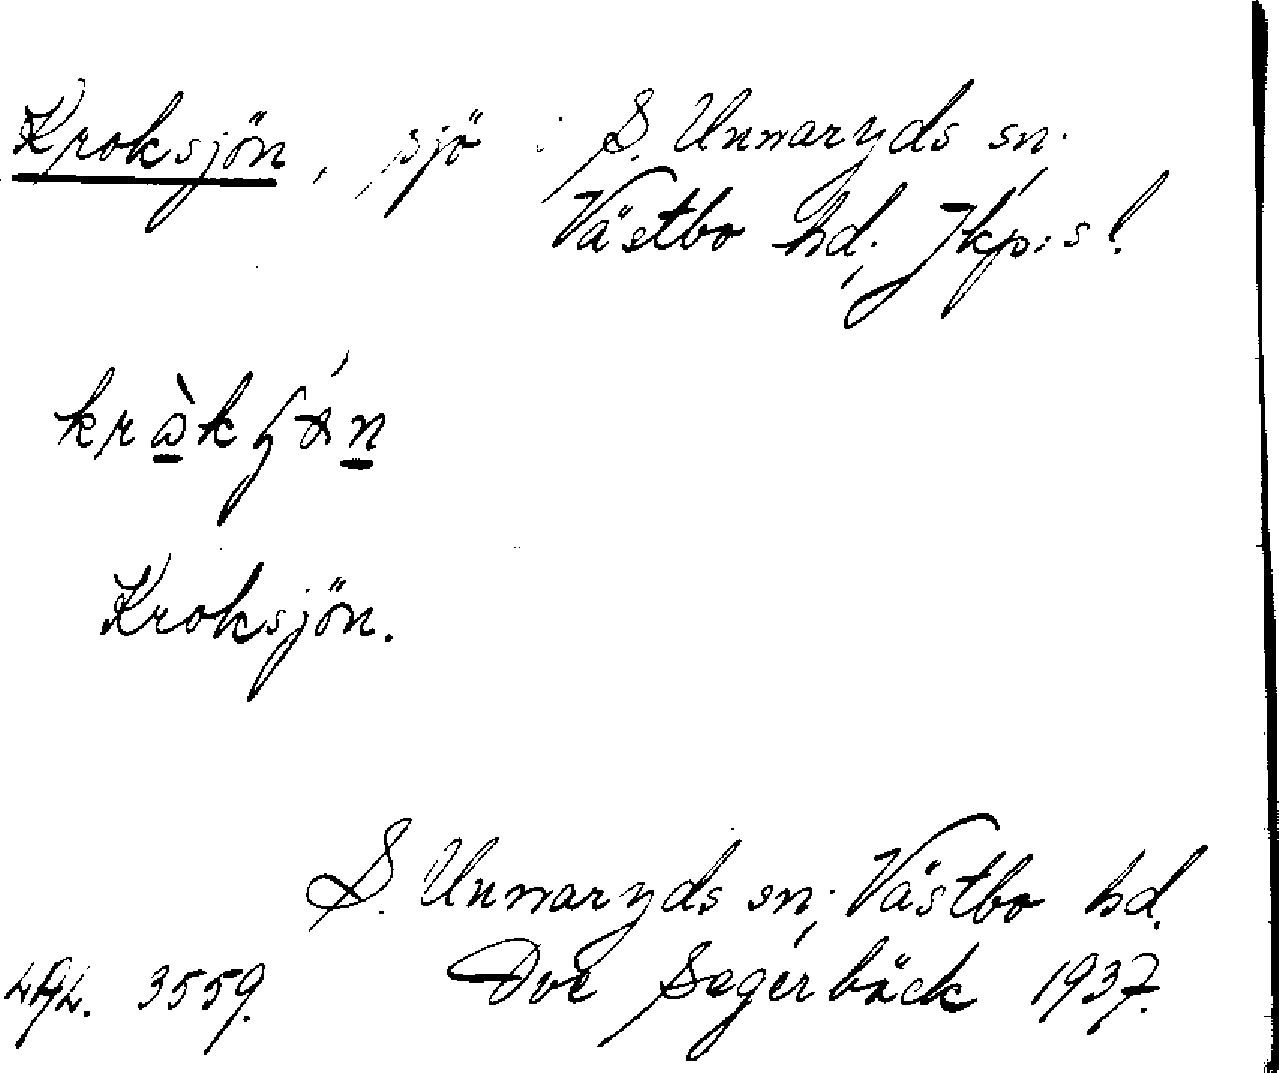 Kroksjön, sjö i S. Unnaryds sn.
Västbo hd, Jkp:s l.
Kroksjön.
S. Unnaryds sn, Västbo hd.
3559. Segerbäck 1937.